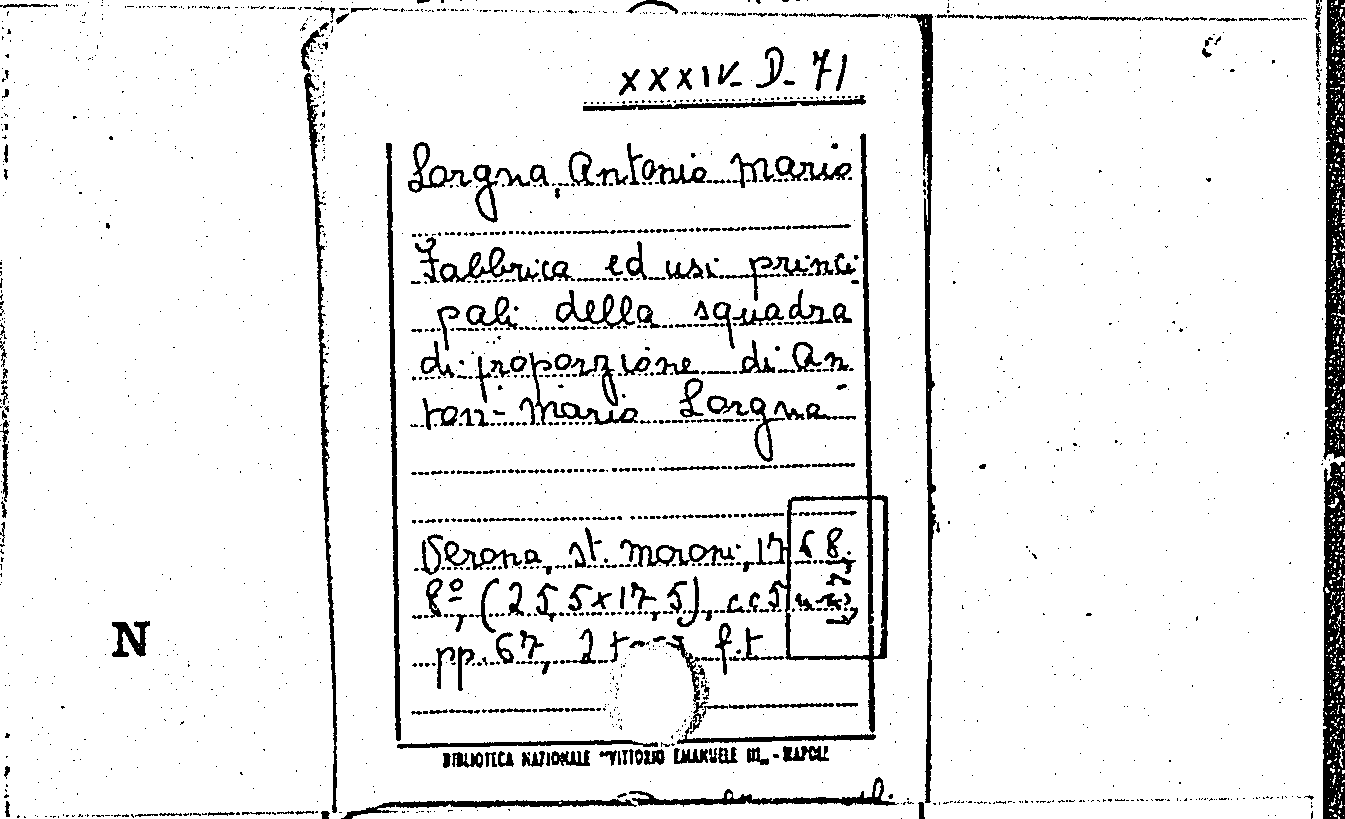 XXXIV- D- 71
Lorgna, Antonio Mario
Fabbrica ed usi princi
pali della squadra
di proporzione di An
ton- Mario Lorgna
Verona, st. Moroni, 1768.
8º, (25,5x17,5), cc 5
pp. 67, 2 f.t
N
BIBLIOTECA NAZIONALE "VITTORIO EMANUELE III„ - NAPOLI